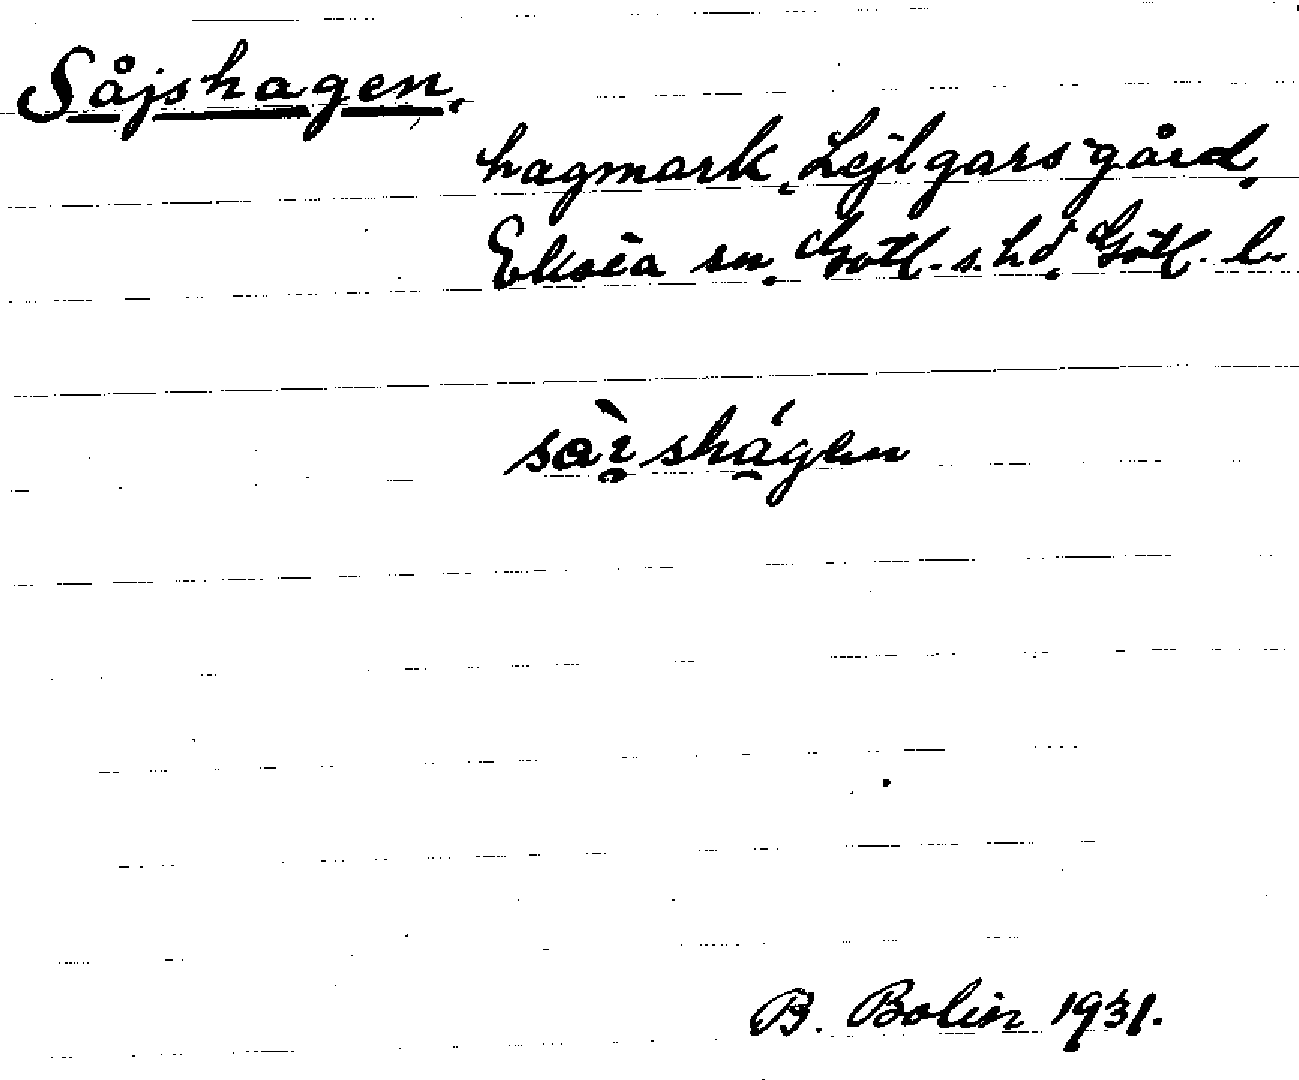 Såjshagen.
hagmark, Lejlgarsgård,
Eksta sn, Gotl. s. hd, Gotl. l.
B. Bolin 1931.